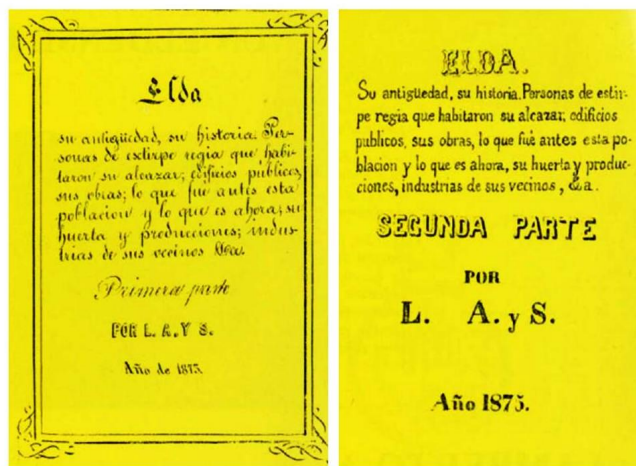 Elda
su antigüedad, su historia. Per-
sonas de extirpe regia que habi-
taron su alcazar; edificios publicos,
sus obras; lo que fue antes esta
poblacion y lo que es ahora; su
huerta y producciones; indus-
trias de sus vecinos &ca.
Primera parte
POR L. A. Y S.
Año de 1875.
ELDA.
Su antigüedad, su historia. Personas de estir-
pe regia que habitaron su alcazar, edificios
publicos, sus obras, lo que fué antes esta po-
blacion y lo que es ahora, su huerta y produc-
ciones, industrias de sus vecinos, &a.
SEGUNDA PARTE
POR
L. A. y S.
Año 1875.